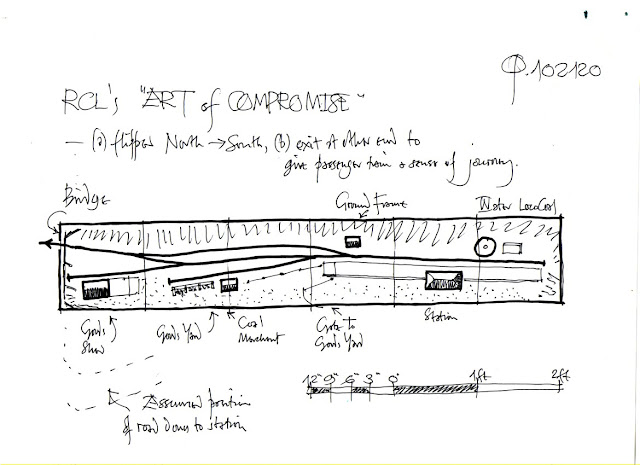 φ.102120
RCL's "ART of COMPROMISE"
— (a) flipped North → South, (b) exit at other end to
give passenger train a sense of journey.
Bridge
Ground Frame
Water
Loco Coal
Goods
Shed
Goods Yard
Coal
Merchant
Gate to
Goods Yard
Station
12" 9" 6" 3" 0 1ft 2ft
Assumed position
of road down to station